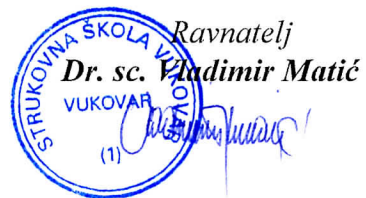 Ravnatelj
Dr. sc. Vladimir Matić
STRUKOVNA ŠKOLA VUKOVAR
VUKOVAR
(1)